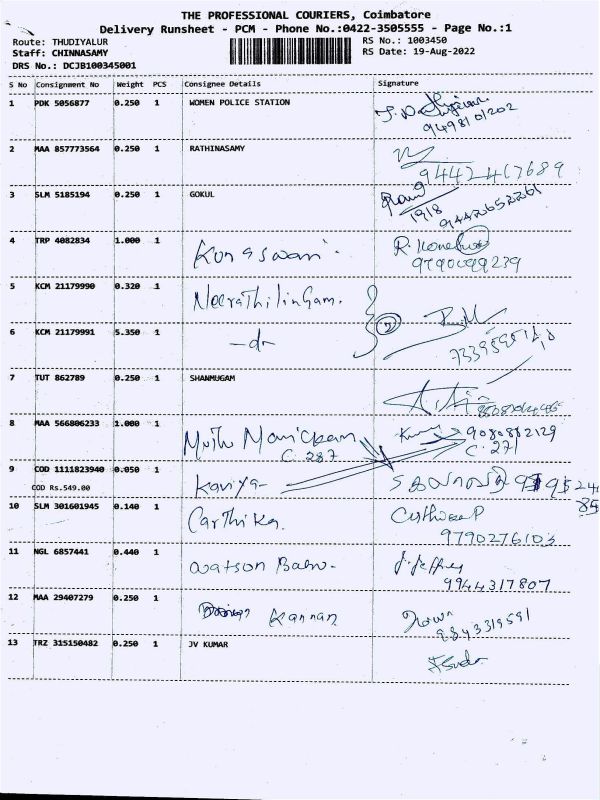 THE PROFESSIONAL COURIERS, Coimbatore
Delivery Runsheet - PCM - Phone No.:0422-3505555 - Page No.:1
Route: THUDIYALUR
RS No.: 1003450
Staff: CHINNASAMY
RS Date: 19-Aug-2022
DRS No.: DCJB100345001
S No Consignment No Weight PCS Consignee Details Signature
1 PDK 5056877 0.250 1 WOMEN POLICE STATION
2 MAA 857773564 0.250 1 RATHINASAMY
9442417689
3 SLM 5185194 0.250 1 GOKUL
1918
9442652261
4 TRP 4082834 1.000 1 Konaswari.
9790099239
5 KCM 21179990 0.320 1 NeerathilinGam.
2
6 KCM 21179991 5.350 1 -do-
7 TUT 862789 0.250 1 SHANMUGAM
8 MAA 566806233 1.000 1 Muthu Manickam
C. 287
9080882129
C. 271
9 COD 1111823940 0.050 1 Kaviya
COD Rs.549.00
10 SLM 301601945 0.140 1 Carthika.
9790276103
11 NGL 6857441 0.440 1 Watson Babu. J. Jeffrey
9944317807
12 MAA 29407279 0.250 1 Kannan
9843319591
13 TRZ 315150482 0.250 1 JV KUMAR